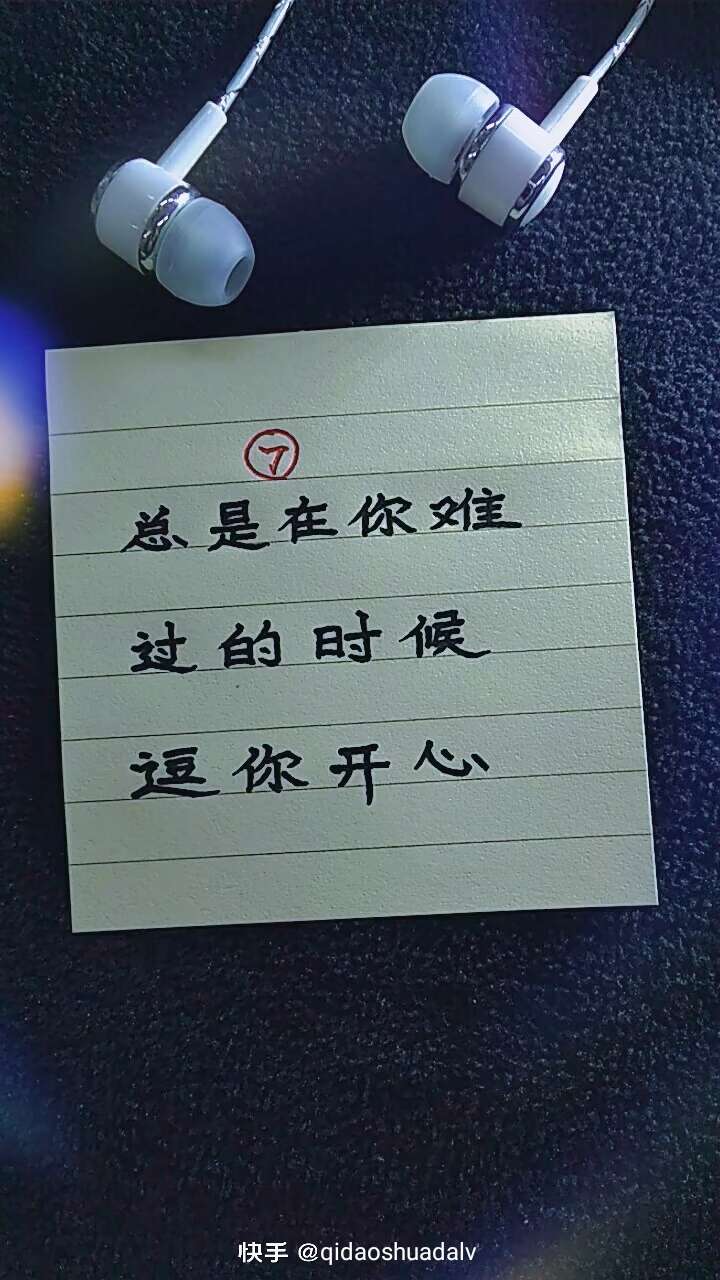 ⑦
总是在你难
过的时候
逗你开心
快手 @qidaoshuadalv